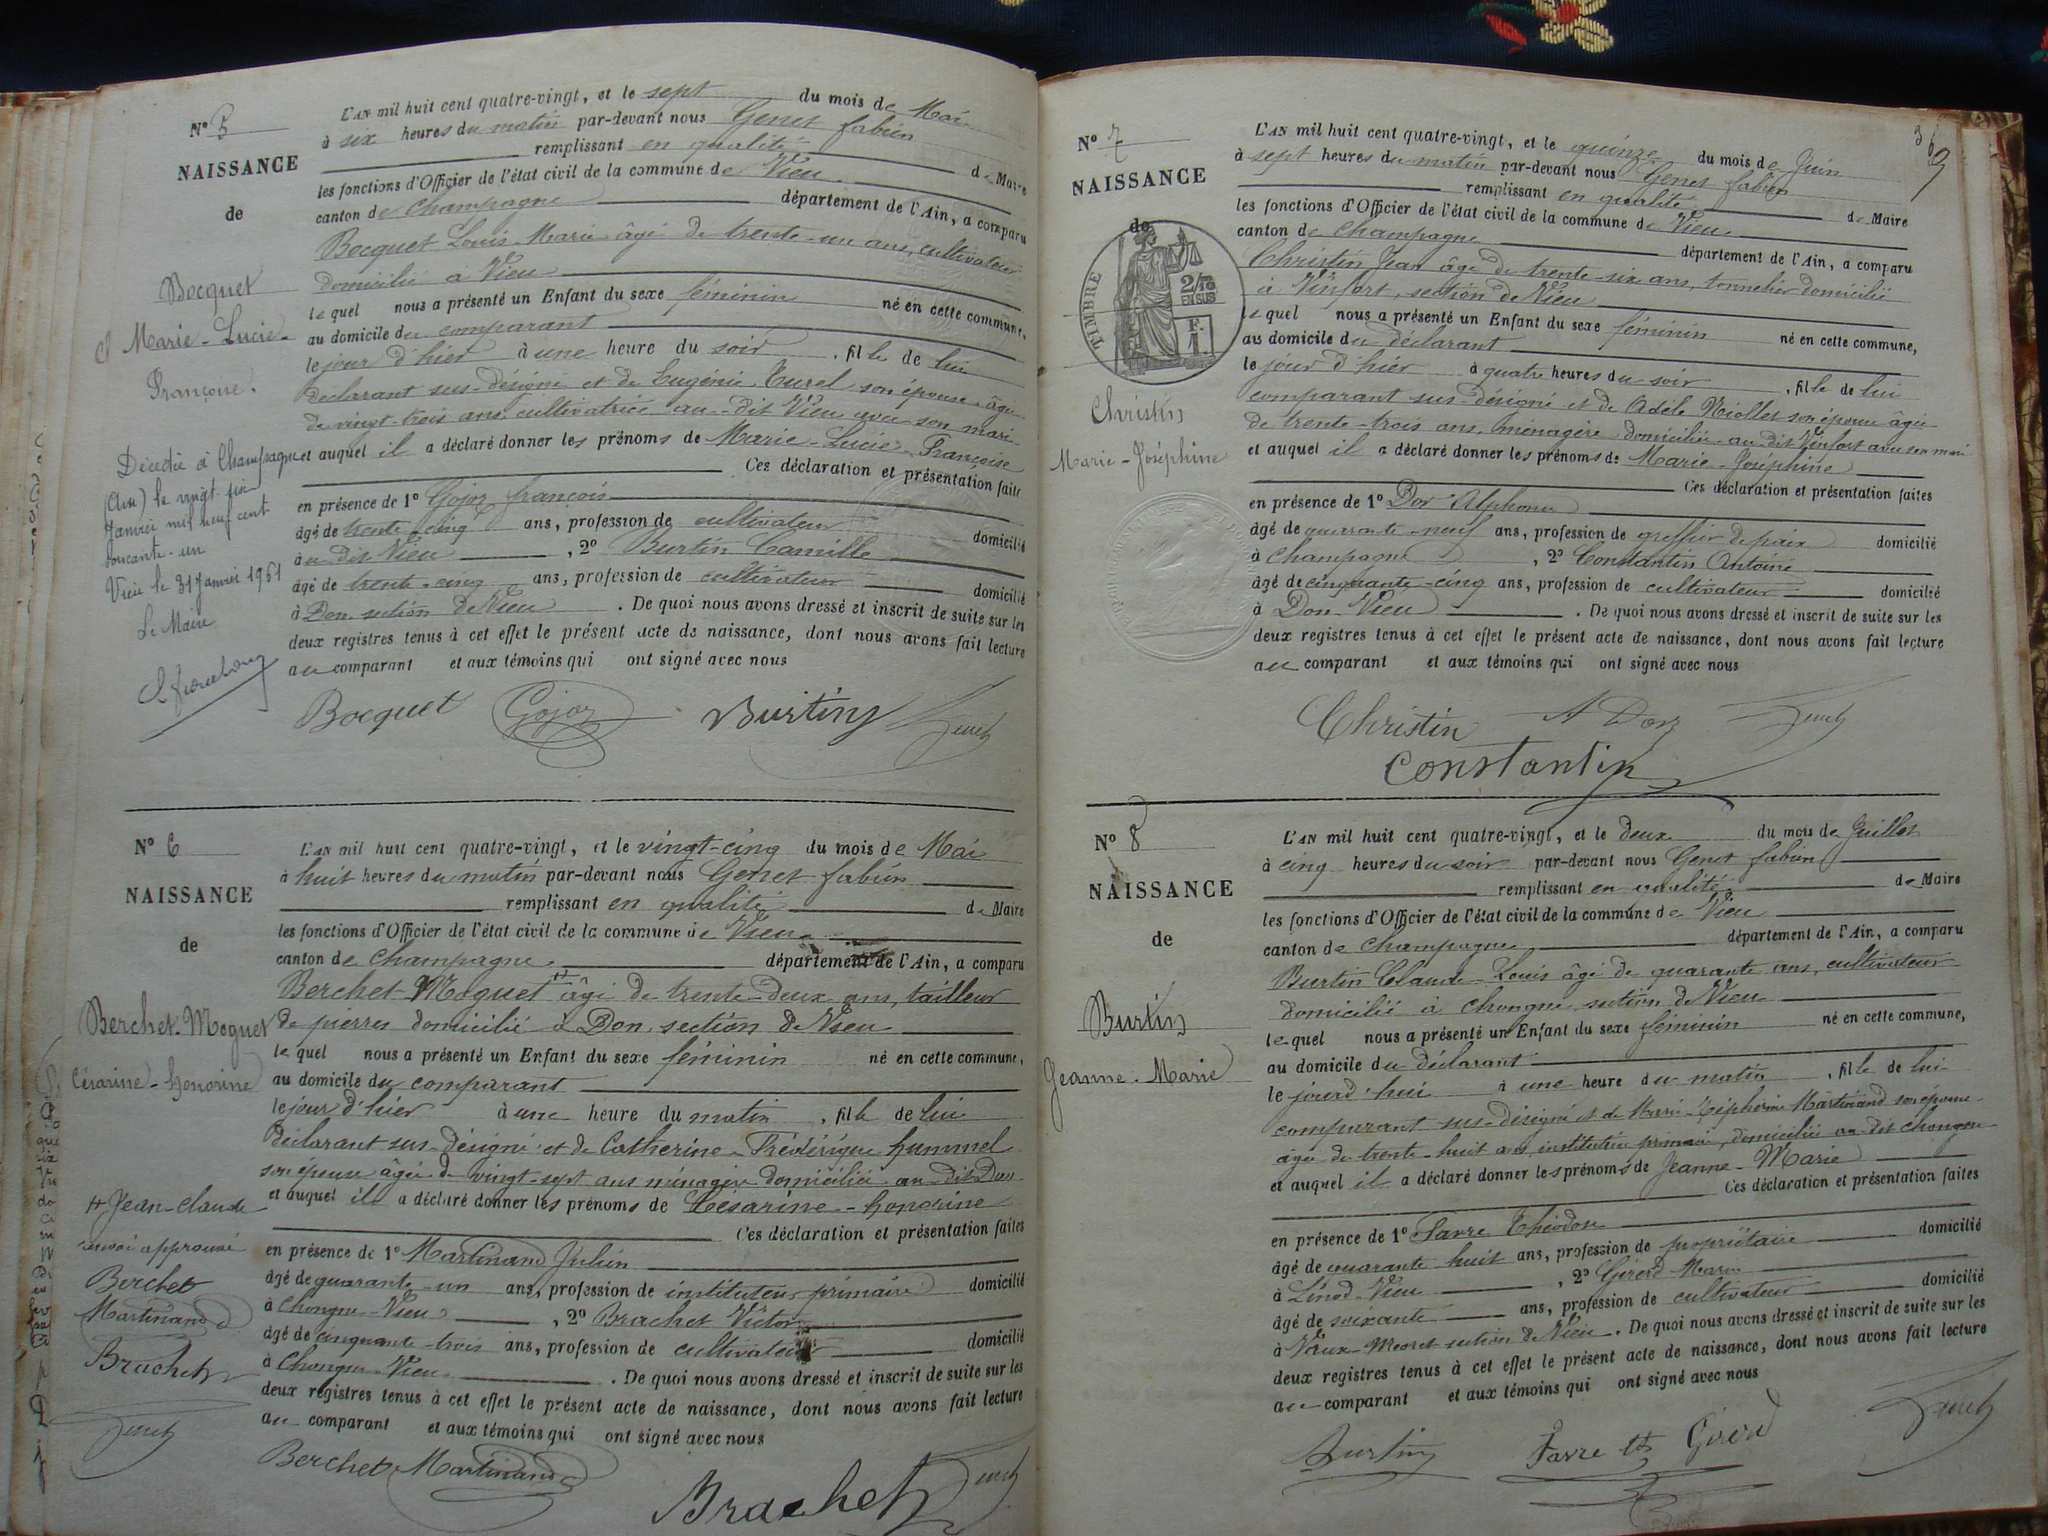 N° 5
NAISSANCE
de
Bocquet
Marie-Lucie-
Françoise.
Décédée à Champagne
(Ain) le vingt six
Janvier mil neuf cent
soixante-un
Vieu le 31 Janvier 1961
Le Maire
L'AN mil huit cent quatre-vingt, et le sept du mois de Mai
à six heures du matin par-devant nous Genet fabien
remplissant en qualité de Maire
les fonctions d'Officier de l'état civil de la commune de Vieu
canton de Champagne département de l'Ain, a comparu
Bocquet Louis-Marie âgé de trente-un ans, cultivateur
domicilié à Vieu
lequel nous a présenté un Enfant du sexe féminin né en cette commune,
au domicile du comparant
le jour d'hier à une heure du soir, fille de lui
déclarant sus-désigné et de Eugénie Turel son épouse, âgée
de vingt-trois ans, cultivatrice au-dit Vieu avec son mari
et auquel il a déclaré donner les prénoms de Marie-Lucie-Françoise
Ces déclaration et présentation faites
en présence de 1° Gojoz françois
âgé de trente-cinq ans, profession de cultivateur domicilié
à u dit Vieu, 2° Burtin Camille
âgé de trente-cinq ans, profession de cultivateur domicilié
à Don section de Vieu. De quoi nous avons dressé et inscrit de suite sur les
deux registres tenus à cet effet le présent acte de naissance, dont nous avons fait lecture
au comparant et aux témoins qui ont signé avec nous
Bocquet Gojoz Burtin Genet
N° 6
NAISSANCE
de
Berchet-Moguet
Césarine-honorine
# Jean-Claude
renvoi approuvé
Berchet
Martinand
Brachet
Genet
L'AN mil huit cent quatre-vingt, et le vingt-cinq du mois de Mai
à huit heures du matin par-devant nous Genet fabien
remplissant en qualité de Maire
les fonctions d'Officier de l'état civil de la commune de Vieu
canton de Champagne département de l'Ain, a comparu
Berchet-Moguet # âgé de trente-deux ans, tailleur
de pierres domicilié à Don, section de Vieu
lequel nous a présenté un Enfant du sexe féminin né en cette commune,
au domicile du comparant
le jour d'hier à une heure du matin, fille de lui
déclarant sus-désigné et de Catherine-Frédérique hummel
son épouse âgée de vingt-sept ans ménagère domiciliée au-dit Don
et auquel il a déclaré donner les prénoms de Césarine-honorine
Ces déclaration et présentation faites
en présence de 1° Martinand Julien
âgé de quarante-un ans, profession de instituteur primaire domicilié
à Chongne-Vieu, 2° Brachet Victor
âgé de cinquante-trois ans, profession de cultivateur domicilié
à Chongne-Vieu. De quoi nous avons dressé et inscrit de suite sur les
deux registres tenus à cet effet le présent acte de naissance, dont nous avons fait lecture
au comparant et aux témoins qui ont signé avec nous
Berchet Martinand Brachet Genet
369
N° 7
NAISSANCE
de
TIMBRE
2/10
EN SUS
F.
1.
Christin
Marie-Joséphine
L'AN mil huit cent quatre-vingt, et le quinze du mois de Juin
à sept heures du matin par-devant nous Genet fabien
remplissant en qualité de Maire
les fonctions d'Officier de l'état civil de la commune de Vieu
canton de Champagne département de l'Ain, a comparu
Christin Jean âgé de trente-six ans, tonnelier domicilié
à Vinfort, section de Vieu
lequel nous a présenté un Enfant du sexe féminin né en cette commune,
au domicile du déclarant
le jour d'hier à quatre heures du soir, fille de lui
comparant sus-désigné et de Adèle Niollet son épouse âgée
de trente-trois ans, ménagère domiciliée au dit Vinfort avec son mari
et auquel il a déclaré donner les prénoms de Marie-Joséphine
Ces déclaration et présentation faites
en présence de 1° Dor Alphonse
âgé de quarante-neuf ans, profession de greffier de paix domicilié
à Champagne, 2° Constantin Antoine
âgé de cinquante-cinq ans, profession de cultivateur domicilié
à Don-Vieu. De quoi nous avons dressé et inscrit de suite sur les
deux registres tenus à cet effet le présent acte de naissance, dont nous avons fait lecture
au comparant et aux témoins qui ont signé avec nous
Christin A Dor Genet
Constantin
N° 8
NAISSANCE
de
Burtin
Jeanne-Marie
L'AN mil huit cent quatre-vingt, et le deux du mois de Juillet
à cinq heures du soir par-devant nous Genet fabien
remplissant en qualité de Maire
les fonctions d'Officier de l'état civil de la commune de Vieu
canton de Champagne département de l'Ain, a comparu
Burtin Claude-Louis âgé de quarante ans, cultivateur
domicilié à Chongne, section de Vieu
lequel nous a présenté un Enfant du sexe féminin né en cette commune,
au domicile du déclarant
le jourd'hui à une heure du matin, fille de lui
comparant sus-désigné et de Marie-Zéphirine Martinand son épouse
âgée de trente-huit ans, institutrice primaire, domiciliée au-dit Chongne
et auquel il a déclaré donner les prénoms de Jeanne-Marie
Ces déclaration et présentation faites
en présence de 1° Favre Théodore
âgé de quarante huit ans, profession de propriétaire domicilié
à Linod-Vieu, 2° Girerd Marin
âgé de soixante ans, profession de cultivateur domicilié
à Vaux-Moret section de Vieu. De quoi nous avons dressé et inscrit de suite sur les
deux registres tenus à cet effet le présent acte de naissance, dont nous avons fait lecture
au comparant et aux témoins qui ont signé avec nous
Burtin Favre th Girerd Genet